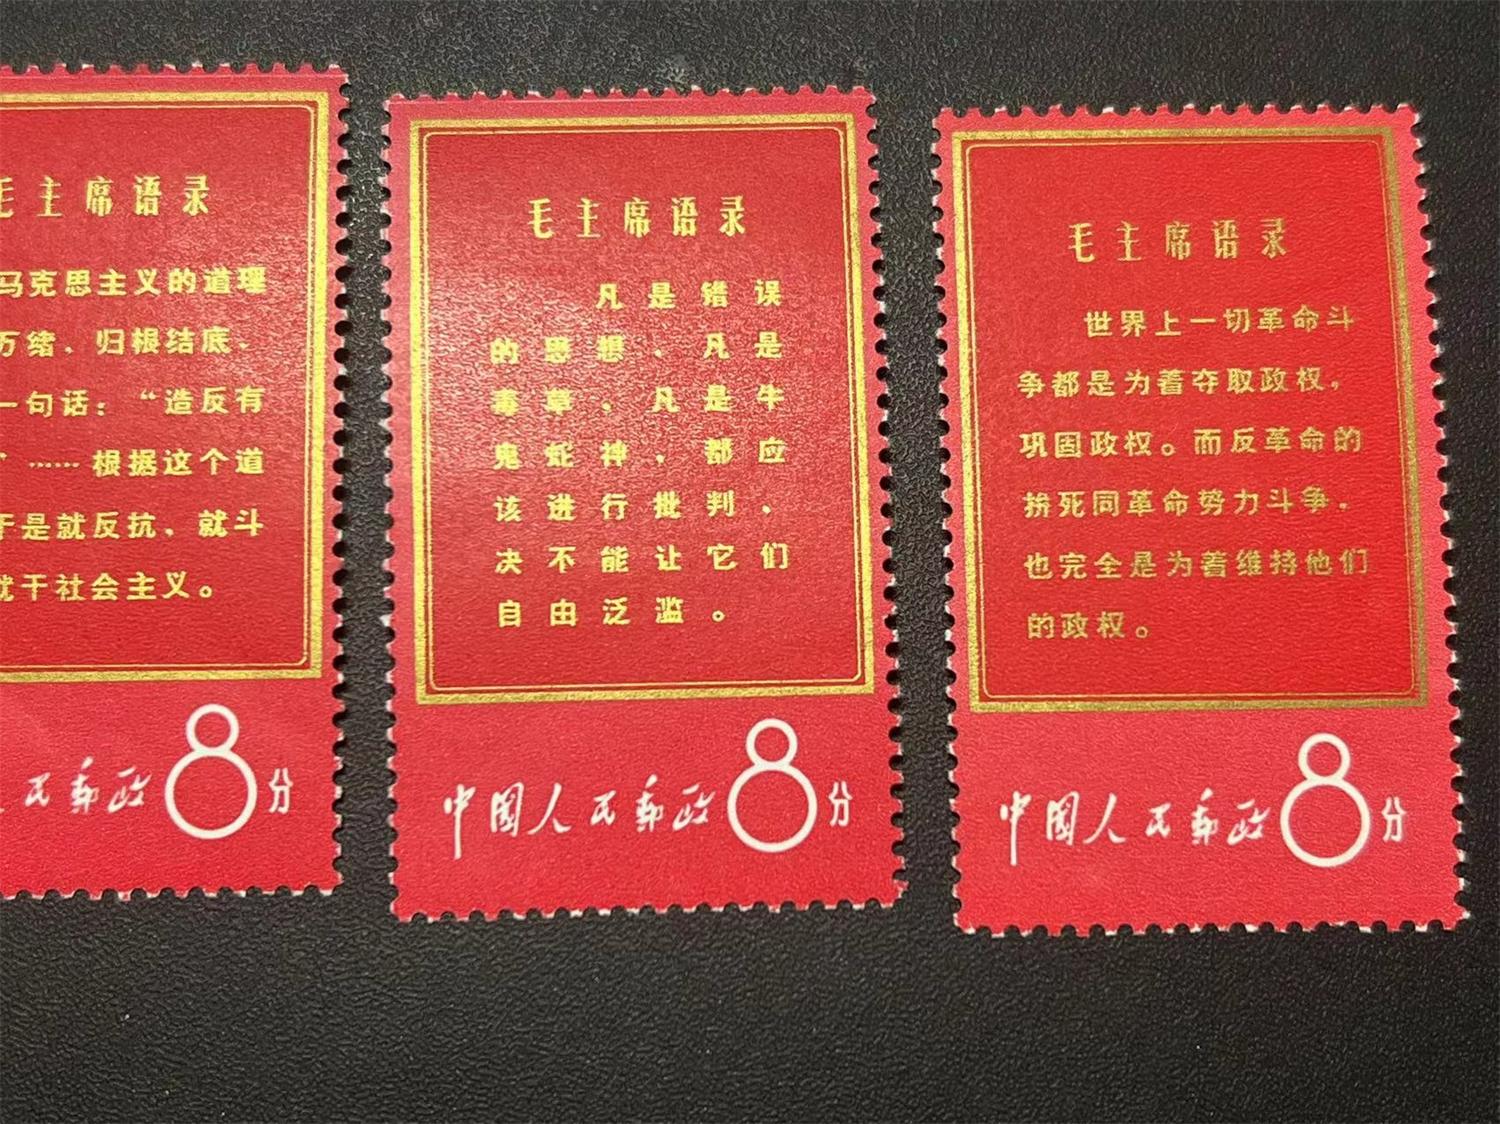 毛主席语录
马克思主义的道理
万缕、归根结底、
一句话：“造反有
”……根据这个道
于是就反抗，就斗
就干社会主义。
人民邮政8分
毛主席语录
凡是错误
的思想，凡是
毒草，凡是牛
鬼蛇神，都应
该进行批判，
决不能让它们
自由泛滥。
中国人民邮政8分
毛主席语录
世界上一切革命斗
争都是为着夺取政权，
巩固政权。而反革命的
拚死同革命势力斗争，
也完全是为着维持他们
的政权。
中国人民邮政8分